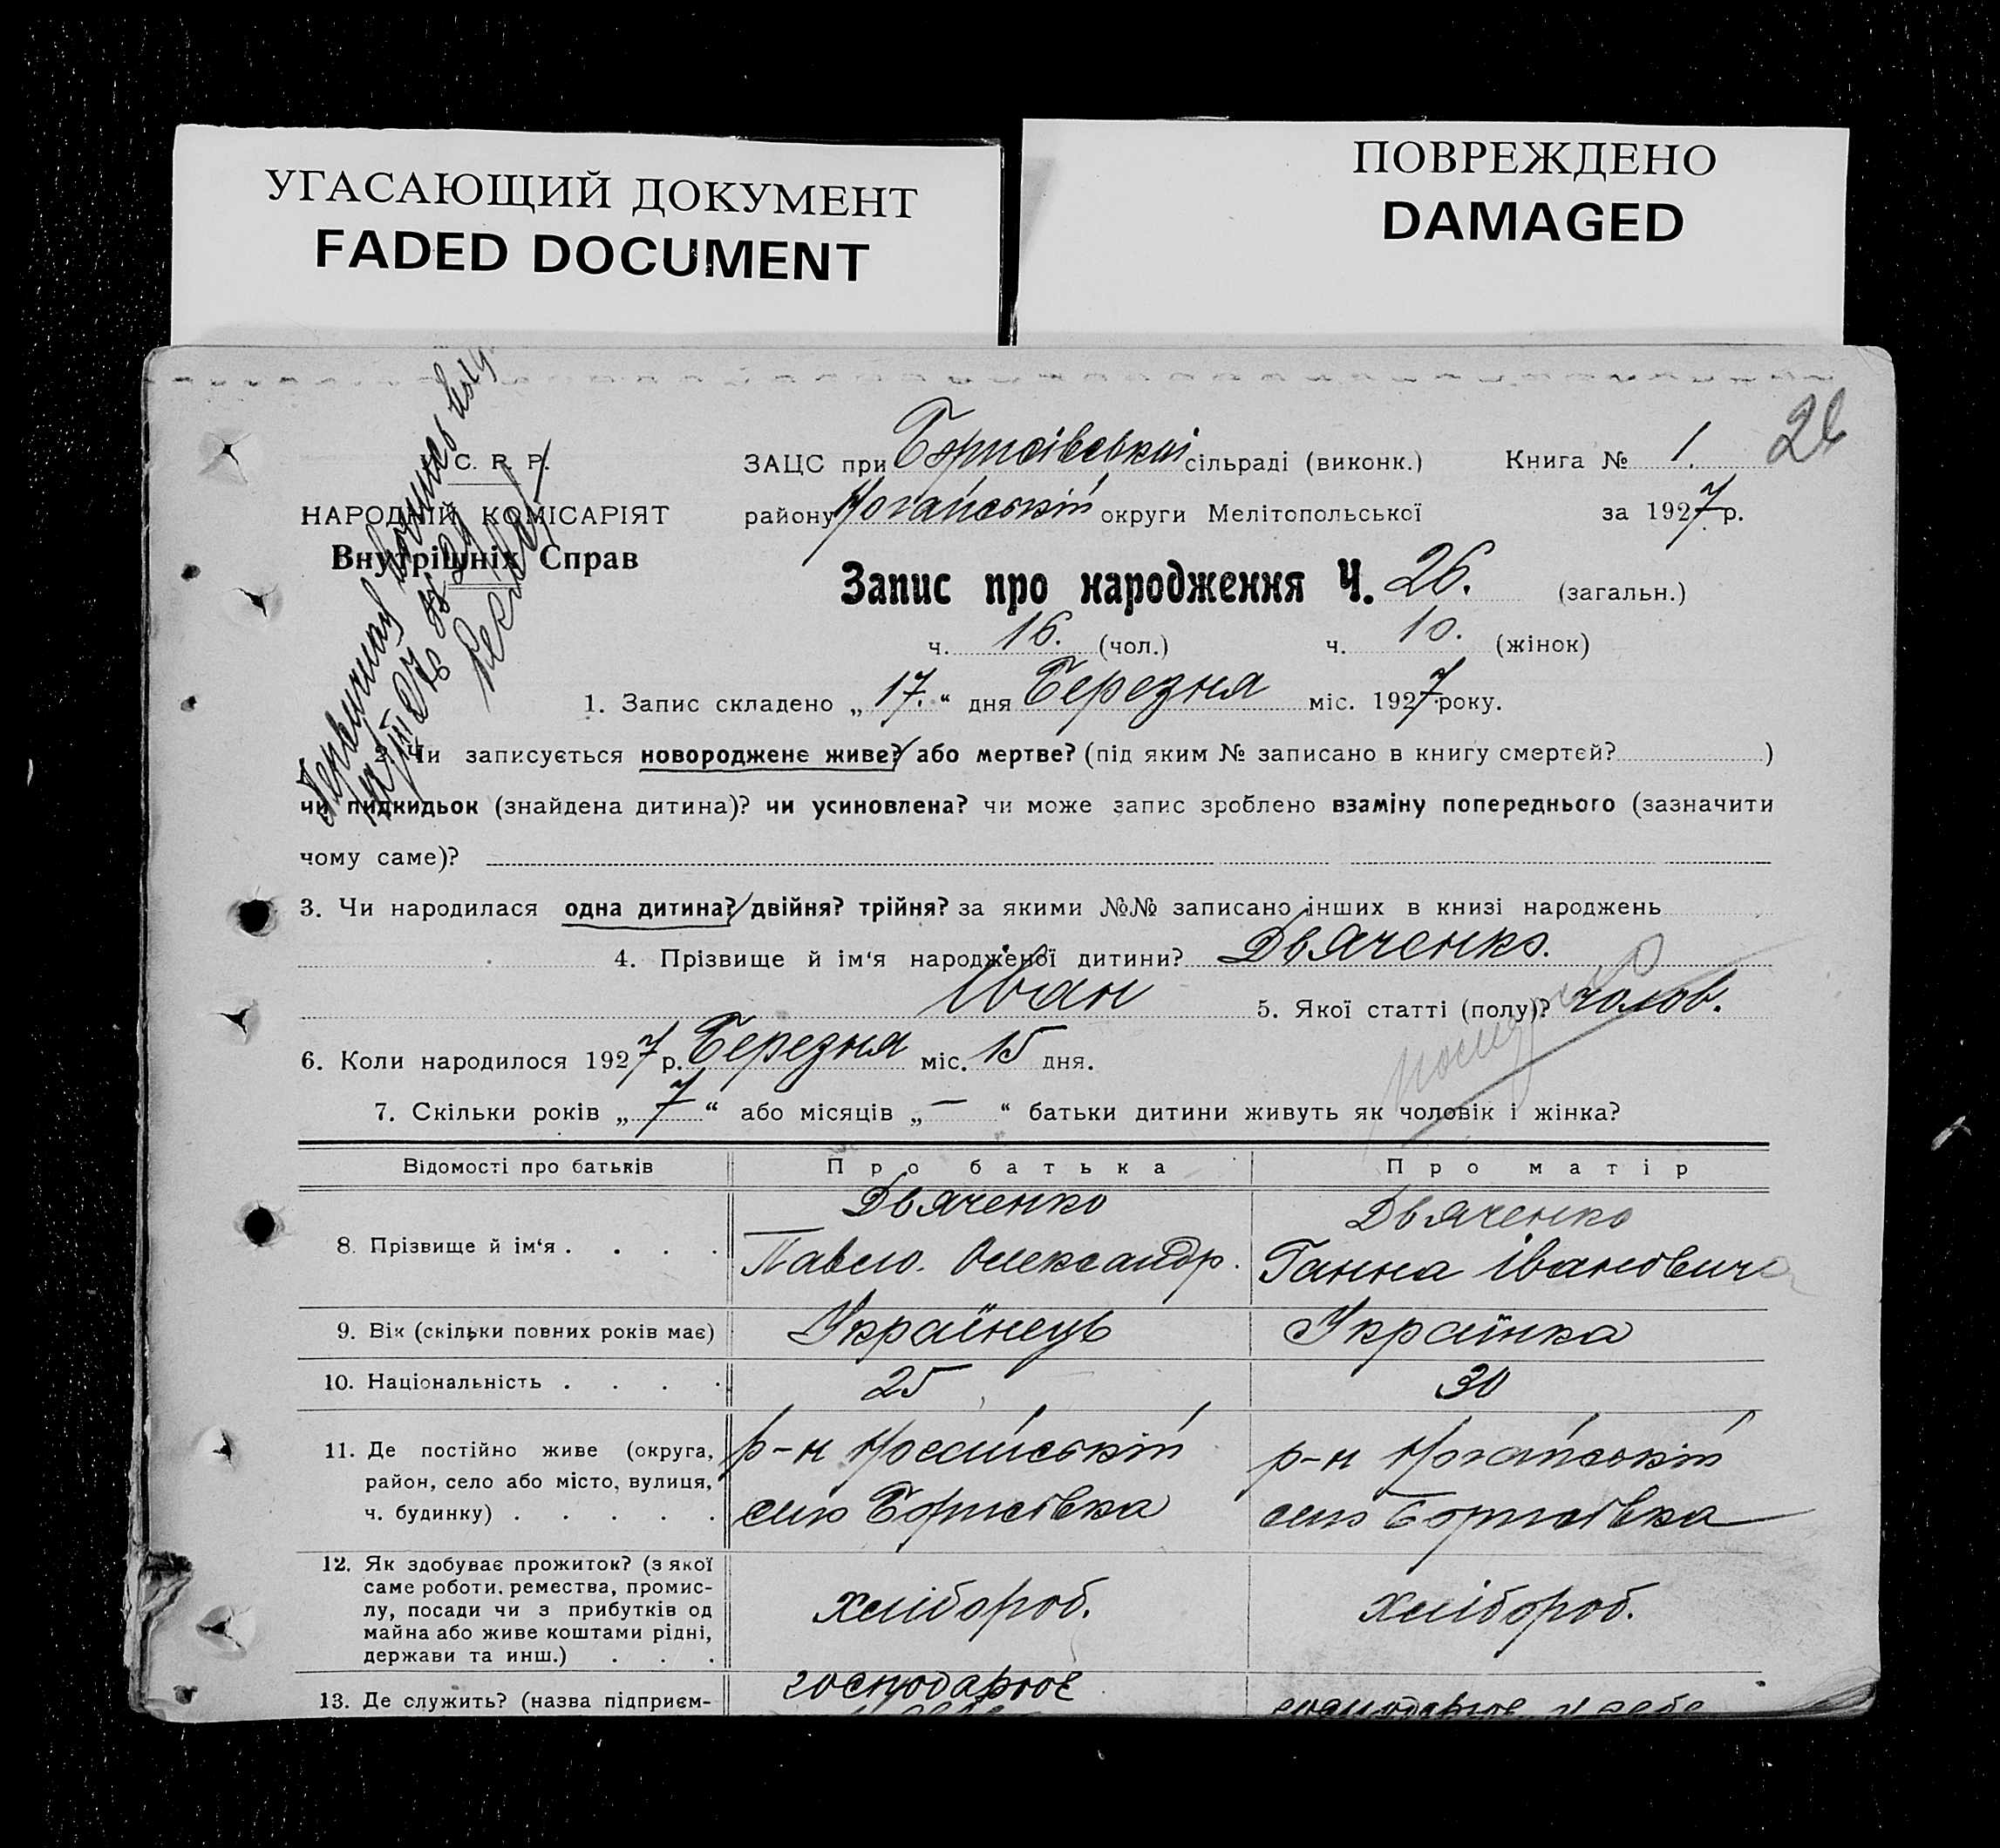 УГАСАЮЩИЙ ДОКУМЕНТ
FADED DOCUMENT
ПОВРЕЖДЕНО
DAMAGED
26
С. Р. Р.
НАРОДНІЙ КОМІСАРІЯТ
Внутрішніх Справ
ЗАЦС при Борисівській сільраді (виконк.) Книга № 1.
району Ногайський округи Мелітопольської за 1927 р.
Запис про народження Ч. 26. (загальн.)
ч. 16. (чол.) ч. 10. (жінок)
1. Запис складено „17.“ дня Березня міс. 1927 року.
2. Чи записується новороджене живе? або мертве? (під яким № записано в книгу смертей? )
чи підкидьок (знайдена дитина)? чи усиновлена? чи може запис зроблено взаміну попереднього (зазначити
чому саме)?
3. Чи народилася одна дитина? двійня? трійня? за якими №№ записано інших в книзі народжень
4. Прізвище й ім‘я народженої дитини? Дьяченко.
Іван 5. Якої статті (полу)? чолов.
6. Коли народилося 1927 р. Березня міс. 15 дня.
7. Скільки років „7“ або місяців „—“ батьки дитини живуть як чоловік і жінка?
Відомості про батьків Про батька Про матір
Дьяченко Дьяченко
8. Прізвище й ім‘я . . . . Павло. Олександр. Ганна Івановича
9. Вік (скільки повних років має) Українець Українка
10. Національність . . . . 25 30
11. Де постійно живе (округа, р-н Ногайський р-н Ногайський
район, село або місто, вулиця,
ч. будинку) . . . . . село Борисівка село Борисівка
12. Як здобуває прожиток? (з якої
саме роботи. ремества, промис-
лу, посади чи з прибутків од хлібороб. хлібороб.
майна або живе коштами рідні,
держави та инш.) . . .
13. Де служить? (назва підприєм- господарює господарює у себе